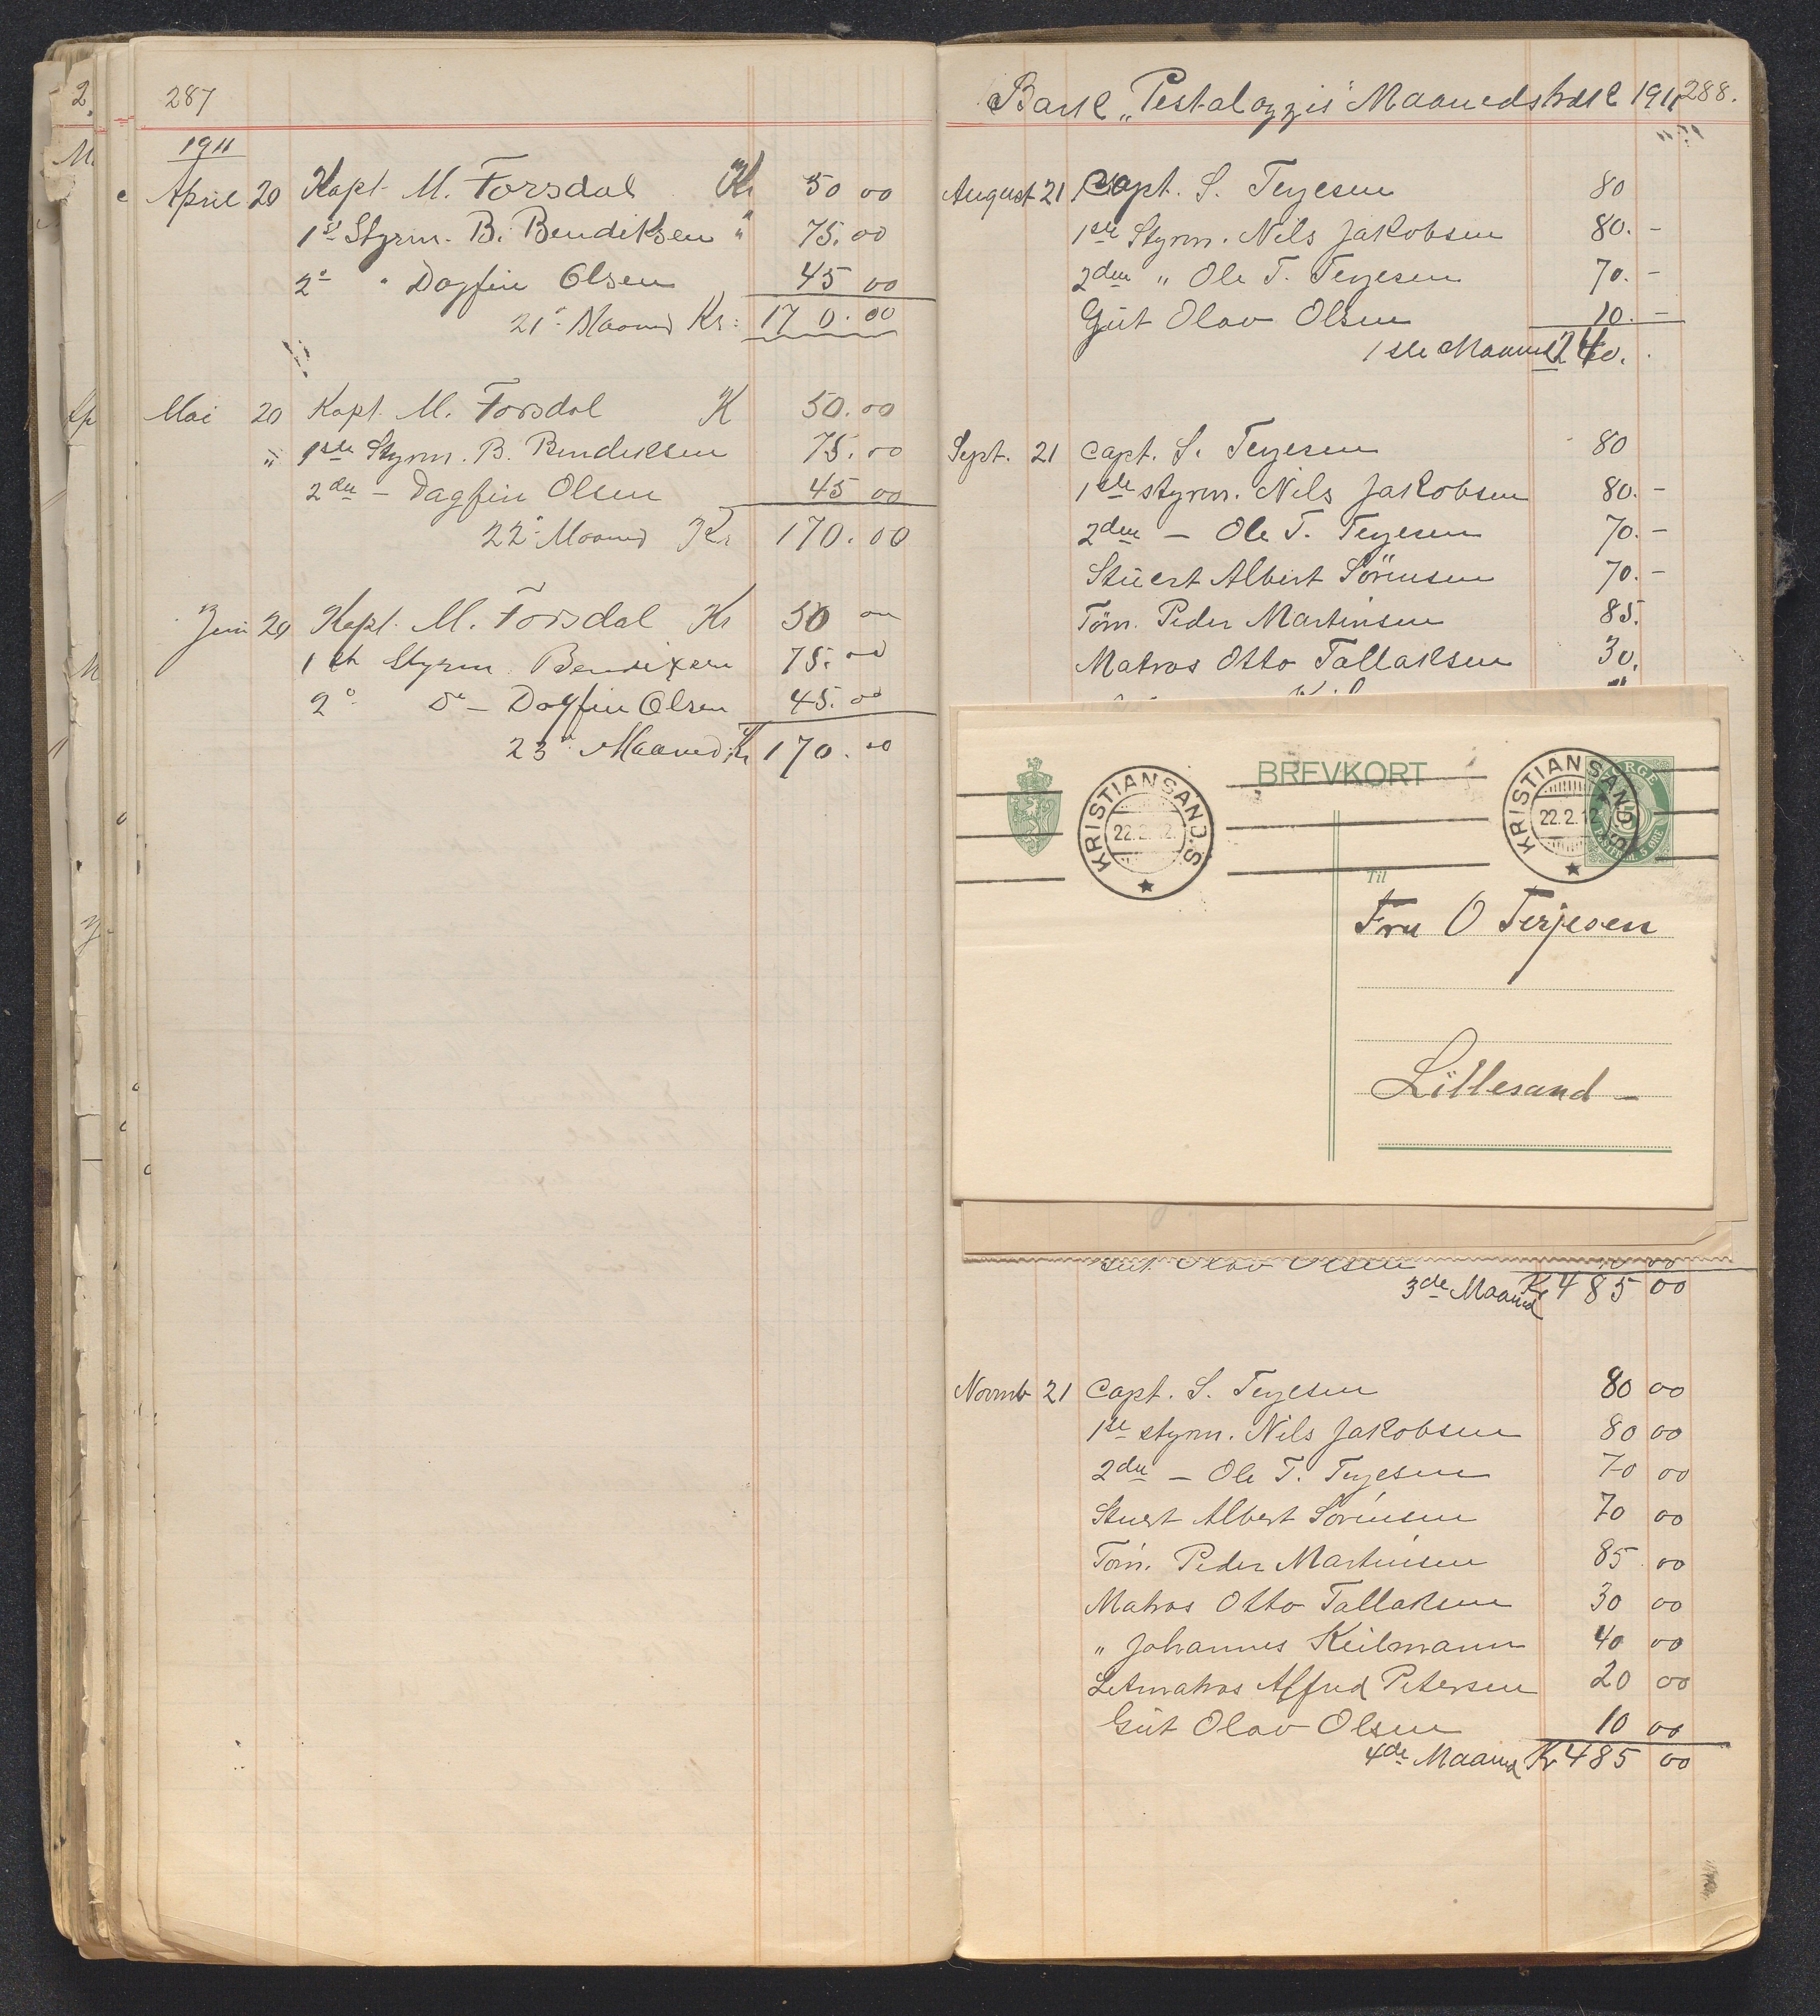 287
1911
April 20 Kapt. M. Torsdal Kr 50 00
1ste Styrm. B. Bendiksen " 75.00
2n " Dagfin Olsen 45 00
21n Maaned Kr: 170.00
Mai 20 Kapt. M. Torsdal K 50.00
" 1ste Styrm. B. Bendiksen 75.00
2den – Dagfin Olsen 45 00
22n Maaned Kr 170.00
Juni 20 Kapt. M. Torsdal Kr 50 00
1st Styrm. Bendixsen 75.00
2o Do – Dagfin Olsen 45.00
23n Maaned Kr 170.00
Bark „Pestalozzis" Maanedstræk 1911 288.
August 21 Capt. S. Terjesen 80
1ste Styrm. Nils Jakobsen 80.-
2den " Ole T. Terjesen 70.-
Gut Olav Olsen 10.-
1ste Maaned 240.
Sept. 21 Capt. S. Terjesen 80
1ste styrm. Nils Jakobsen 80.-
2den – Ole T. Terjesen 70.-
Stuert Albert Sörensen 70.-
Töm. Peder Martinsen 85.
Matros Otto Tallaksen 30.
BREVKORT
KRISTIANSAND.S
22.2.12
KRISTIANSAND.S
22.2.12
NORGE
5
POSTFRIM. 5 ØRE
Til
Fru O Terjesen
Lillesand –
Gut Olav Olsen 10 00
3de Maaned Kr 485 00
Novmb 21 Capt. S. Terjesen 80 00
1ste styrm. Nils Jakobsen 80 00
2den – Ole T. Terjesen 70 00
Stuert Albert Sörensen 70 00
Töm. Peder Martinsen 85 00
Matros Otto Tallaksen 30 00
" Johannes Keilmann 40 00
Letmatros Alfred Petersen 20 00
Gut Olav Olsen 10 00
4de Maaned Kr 485 00